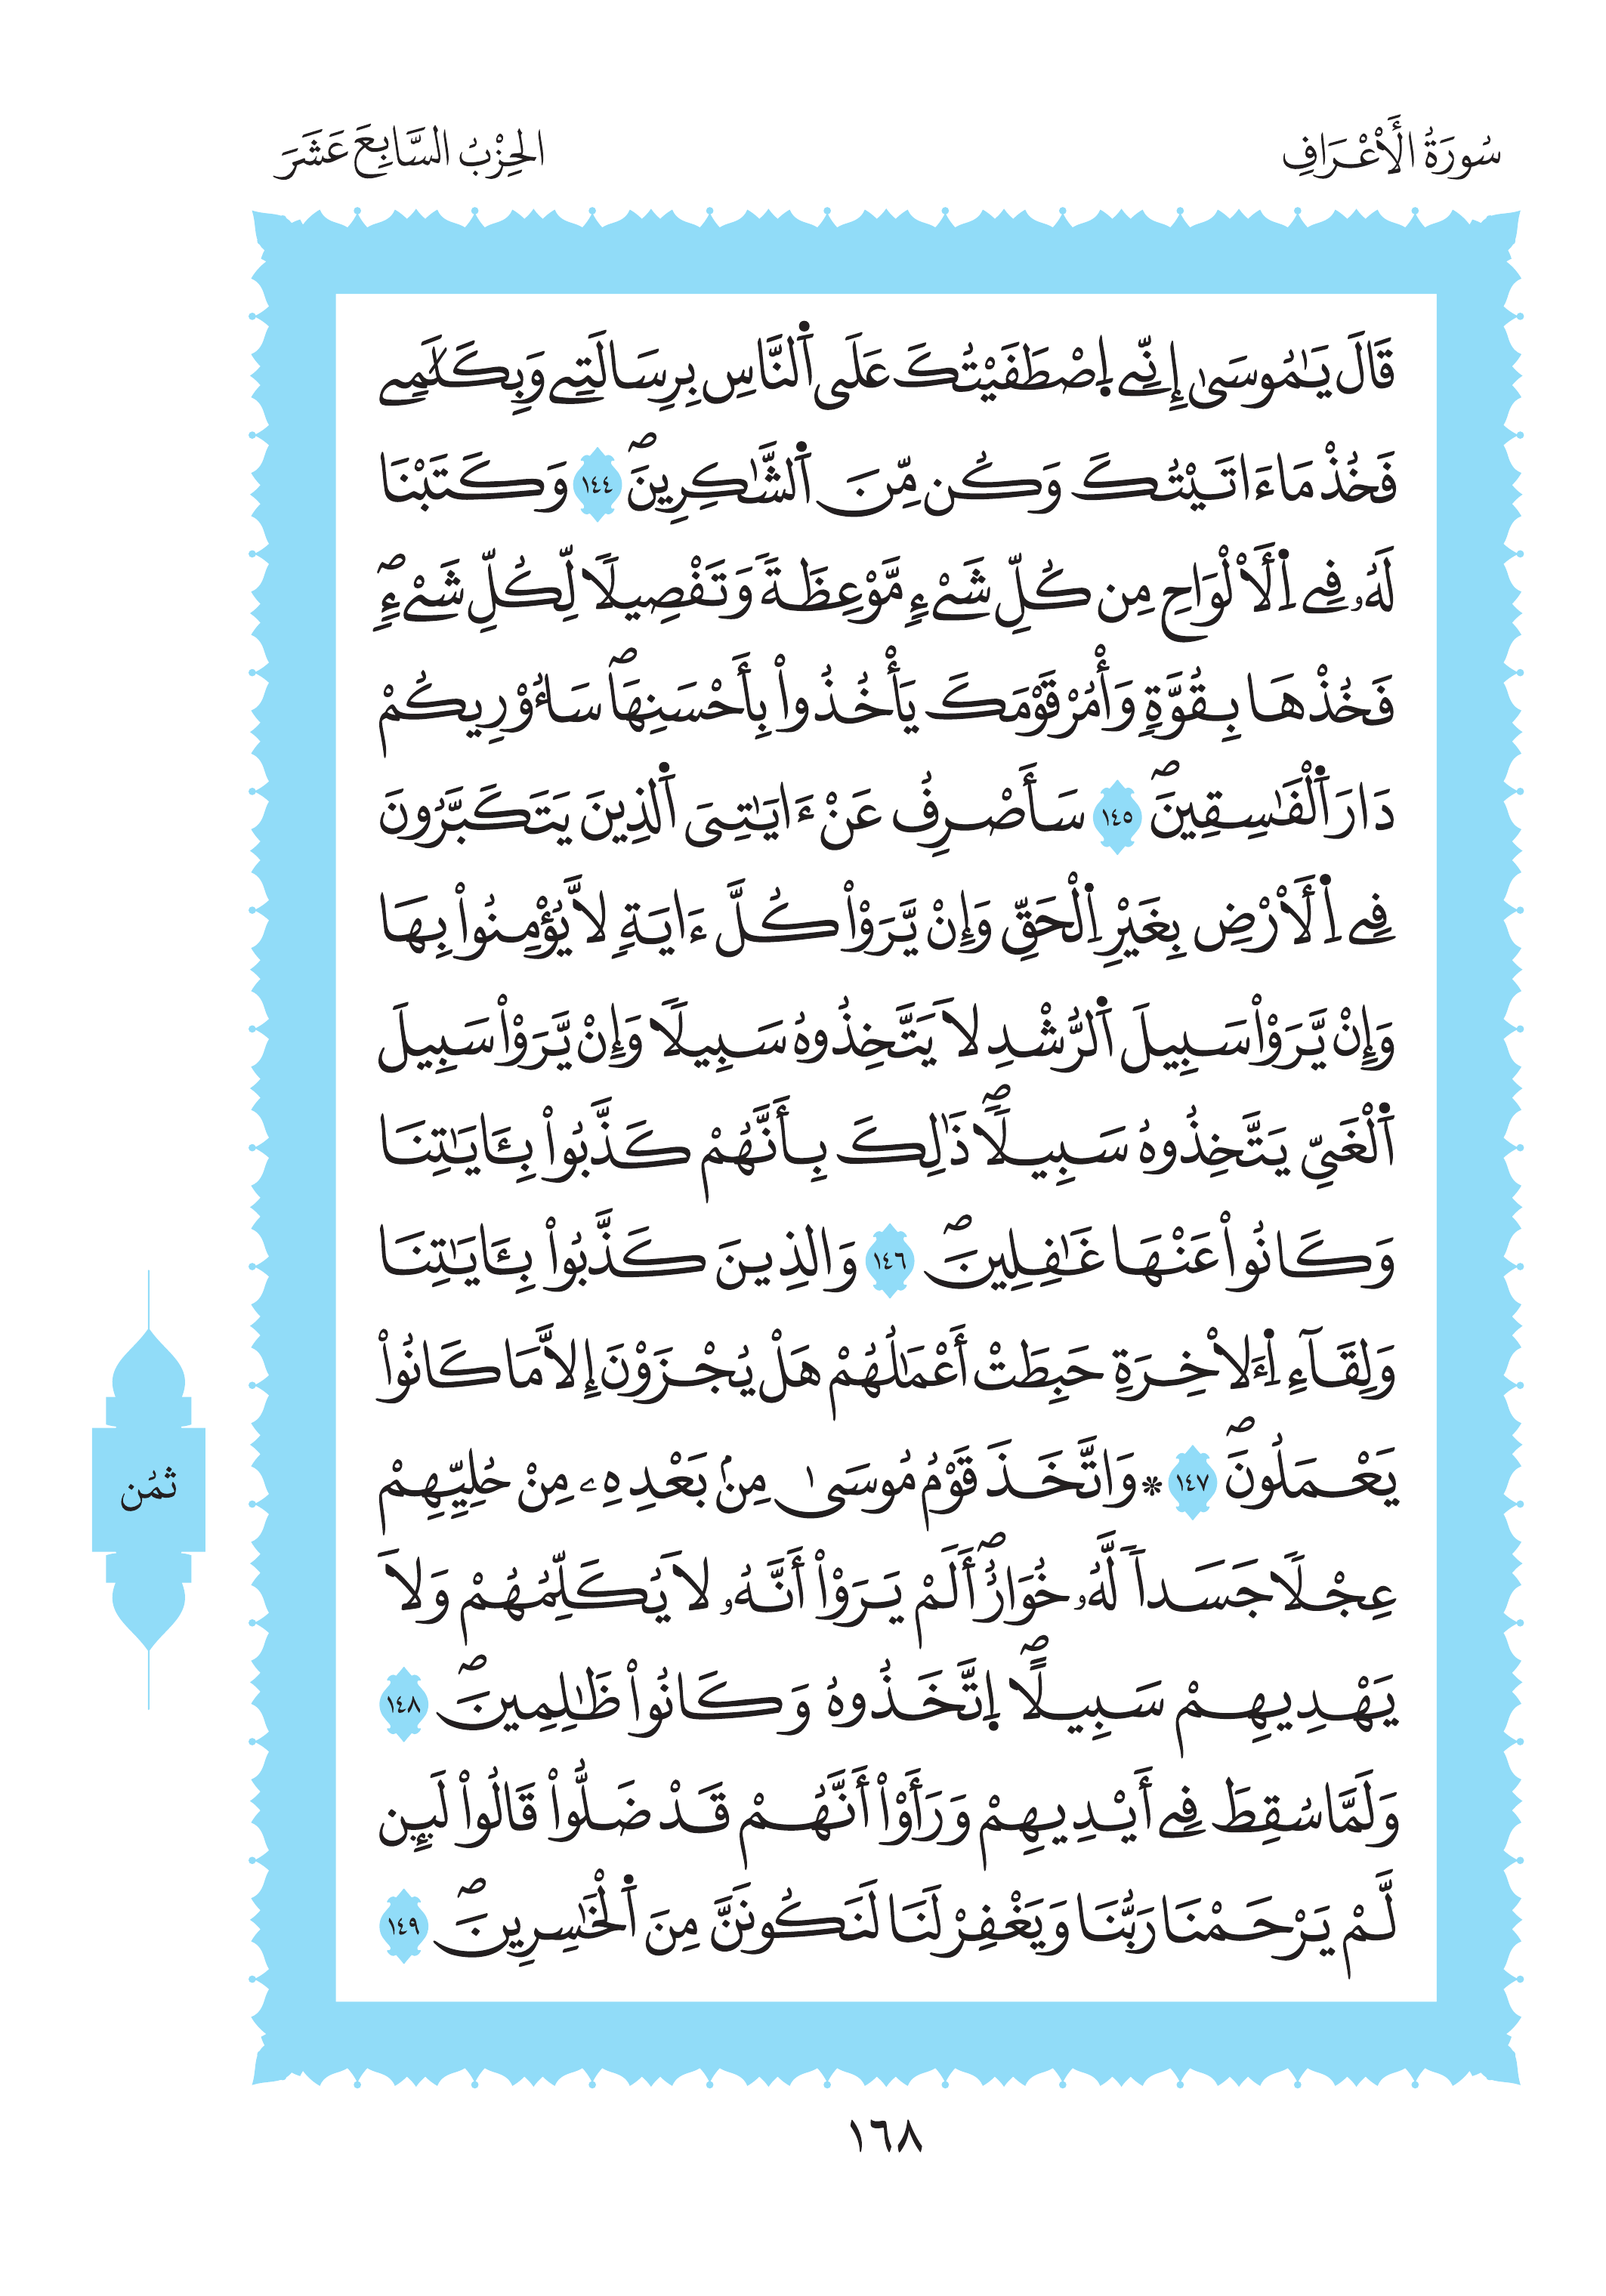 سُورَةُ الْأَعْرَافِ
الحِزْبُ السَّابِعَ عَشَرَ
قَالَ يَٰمُوسَىٰ إِنِّے اِ۪صْطَفَيْتُكَ عَلَى اَ۬لنَّاسِ بِرِسَالَتِے وَبِكَلَٰمِے
فَخُذْ مَا ءَاتَيْتُكَ وَكُن مِّنَ اَ۬لشَّٰكِرِينَۖ ١٤٤ وَكَتَبْنَا
لَهُۥ فِے اِ۬لَأَلْوَاحِ مِن كُلِّ شَےْءٖ مَّوْعِظَةٗ وَتَفْصِيلاٗ لِّكُلِّ شَےْءٖۖ
فَخُذْهَا بِقُوَّةٖ وَأْمُرْ قَوْمَكَ يَأْخُذُواْ بِأَحْسَنِهَاۖ سَأُوْرِيكُمْ
دَارَ اَ۬لْفَٰسِقِينَۖ ١٤٥ سَأَصْرِفُ عَنْ ءَايَٰتِىَ اَ۬لذِينَ يَتَكَبَّرُونَ
فِے اِ۬لَأَرْضِ بِغَيْرِ اِ۬لْحَقِّ وَإِنْ يَّرَوْاْ كُلَّ ءَايَةٖ لاَّ يُؤْمِنُواْ بِهَا
وَإِنْ يَّرَوْاْ سَبِيلَ اَ۬لرُّشْدِ لاَ يَتَّخِذُوهُ سَبِيلاٗ وَإِنْ يَّرَوْاْ سَبِيلَ
اَ۬لْغَيِّ يَتَّخِذُوهُ سَبِيلاٗۖ ذَٰلِكَ بِأَنَّهُمْ كَذَّبُواْ بِـَٔايَٰتِنَا
وَكَانُواْ عَنْهَا غَٰفِلِينَۖ ١٤٦ وَالذِينَ كَذَّبُواْ بِـَٔايَٰتِنَا
وَلِقَآءِ اِ۬لَأخِرَةِ حَبِطَتْ أَعْمَٰلُهُمْ هَلْ يُجْزَوْنَ إِلاَّ مَا كَانُواْ
يَعْمَلُونَۖ ١٤٧ * وَاتَّخَذَ قَوْمُ مُوسَىٰ مِنۢ بَعْدِهِۦ مِنْ حُلِيِّهِمْ
عِجْلاٗ جَسَداٗ لَّهُۥ خُوَارٌۖ أَلَمْ يَرَوْاْ أَنَّهُۥ لاَ يُكَلِّمُهُمْ وَلاَ
يَهْدِيهِمْ سَبِيلاًۖ اِ۪تَّخَذُوهُ وَكَانُواْ ظَٰلِمِينَۖ ١٤٨
وَلَمَّا سُقِطَ فِے أَيْدِيهِمْ وَرَأَوْاْ أَنَّهُمْ قَدْ ضَلُّواْ قَالُواْ لَئِن
لَّمْ يَرْحَمْنَا رَبُّنَا وَيَغْفِرْ لَنَا لَنَكُونَنَّ مِنَ اَ۬لْخَٰسِرِينَۖ ١٤٩
ثُمُن
١٦٨